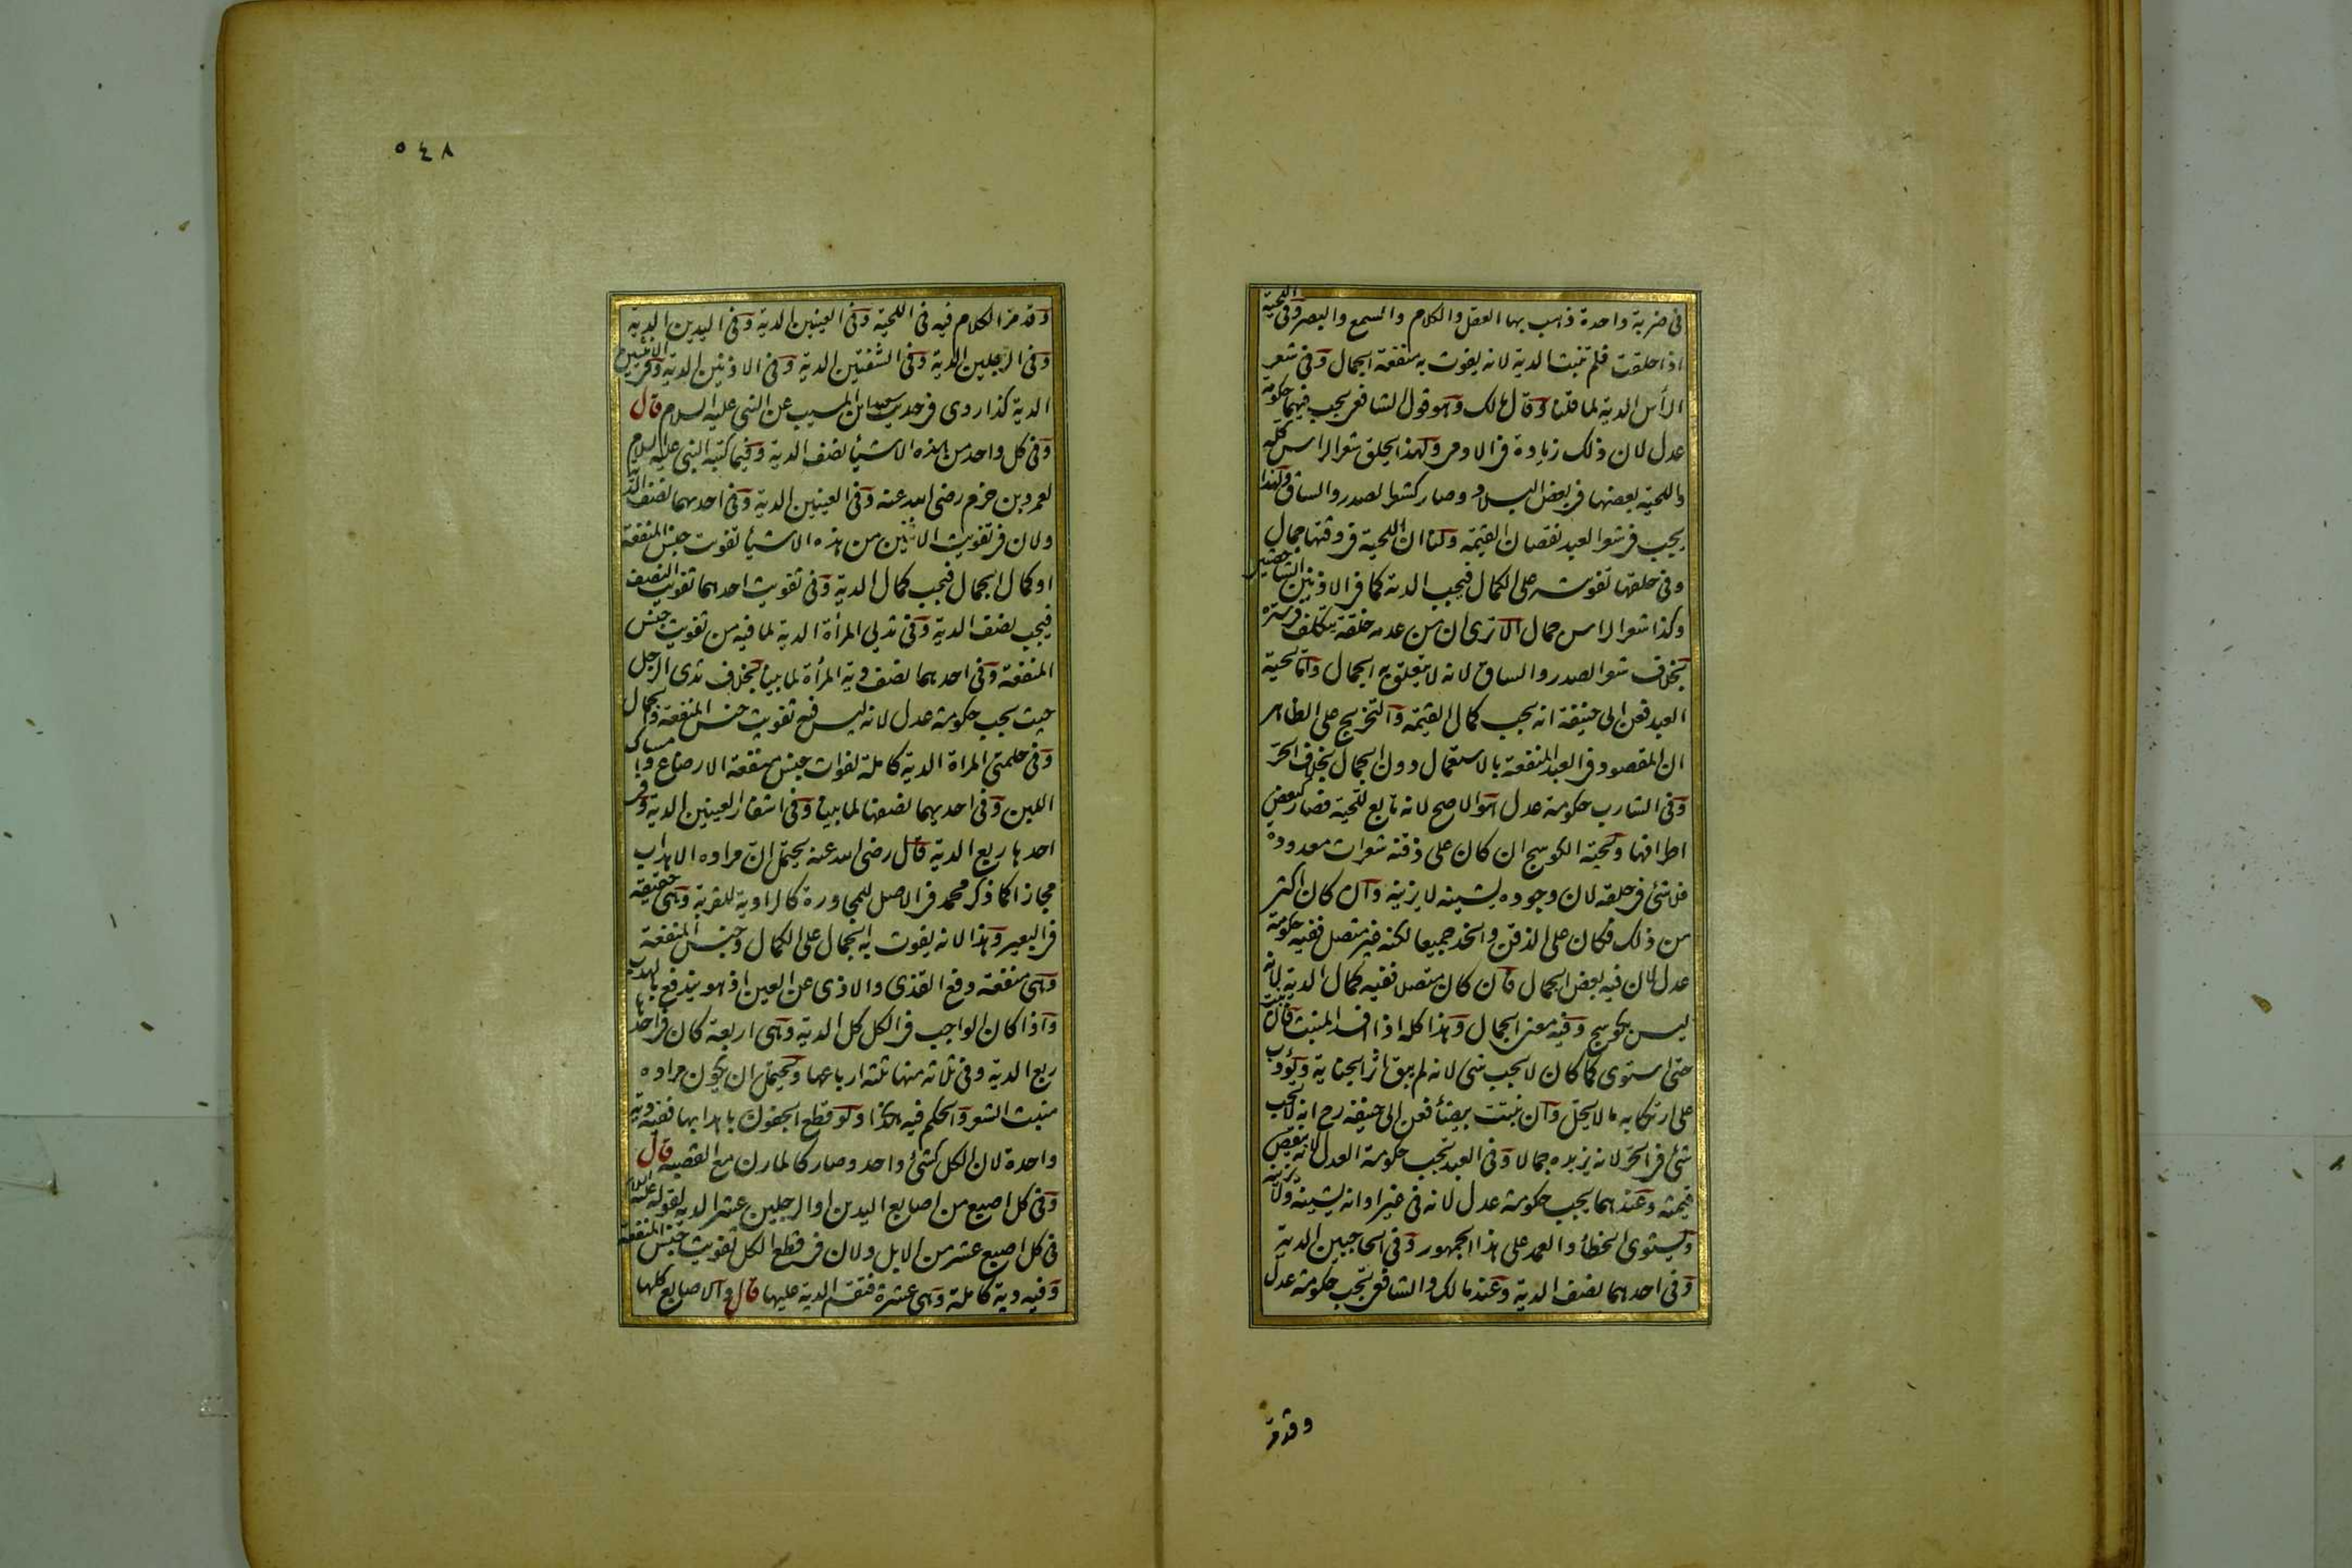 فى ضربة واحدة ذهب بها العقل والكلام والسمع والبصر وفى اللحية
اذا حلقت فلم تنبت الدية لانه يفوت به منفعة الجمال وفى شعر
الرأس الدية لما قلنا وقال مالك وهو قول الشافعى يجب فيهما حكومة
عدل لان ذلك زيادة فى الادمى ولهذا يحلق شعر الراس كله
واللحية بعضها فى بعض البلاد وصار كشعر الصدر والساق ولهذا
يجب فى شعر العبد نقصان القيمة ولنا ان اللحية فى وقتها جمال
وفى حلقها تفويته على الكمال فيجب الدية كما فى الاذنين الشاخصتين
وكذا شعر الراس جمال الا ترى ان من عدمه خلقة يتكلف فى ستره
بخلاف شعر الصدر والساق لانه لا يتعلق به الجمال واما لحية
العبد فعن ابى حنيفة انه يجب كمال القيمة والتخريج على الظاهر
ان المقصود فى العبد المنفعة بالاستعمال دون الجمال بخلاف الحر
وفى الشارب حكومة عدل هو الاصح لانه تابع للحية فصار كبعض
اطرافها ولحية الكوسج ان كان على ذقنه شعرات معدودة
فلا شئ فى حلقه لان وجوده يشينه لا يزينه وان كان اكثر
من ذلك فكان على الذقن والخد جميعا لكنه غير متصل ففيه حكومة
عدل لان فيه بعض الجمال فان كان متصلا ففيه كمال الدية لانه
ليس بكوسج وفيه معنى الجمال وهذا كله اذا فسد المنبت فان نبت
حتى استوى كما كان لا يجب شئ لانه لم يبق اثر الجناية ويؤدب
على ارتكابه ما لا يحل وان نبتت بيضأ فعن ابى حنيفة رح انه لا يجب
شئ فى الحر لانه يزيده جمالا وفى العبد تجب حكومة العدل لانه ينقص
قيمته وعندهما يجب حكومة عدل لانه فى غير اوانه يشينه ولا يزينه
ويستوى الخطأ والعمد على هذا الجمهور وفى الحاجبين الدية
وفى احدهما نصف الدية وعند مالك والشافعى تجب حكومة عدل
وقد مر
٥٤٨
وقد مر الكلام فيه فى اللحية وفى العينين الدية وفى اليدين الدية
وفى الرجلين الدية وفى الشفتين الدية وفى الاذنين الدية وفى الانثيين
الدية كذا روى فى حديث سعيد ابن المسيب عن النبى عليه السلام قال
وفى كل واحد من هذه الاشيأ نصف الدية وفيما كتبه النبى عليه السلام
لعمرو بن حزم رضى الله عنه وفى العينين الدية وفى احدهما نصف الدية
ولان فى تفويت الاثنين من هذه الاشيأ تفويت جنس المنفعة
او كمال الجمال فيجب كمال الدية وفى تفويت احدهما تفويت النصف
فيجب نصف الدية وفى ثديى المرأة الدية لما فيه من تفويت جنس
المنفعة وفى احدهما نصف دية المرأة لما بينا بخلاف ثدى الرجل
حيث يجب حكومة عدل لانه ليس فيه تفويت جنس المنفعة والجمال
وفى حلمتى المراة الدية كاملة لفوات جنس منفعة الارضاع وامساك
اللبن وفى احديهما نصفها لما بينا وفى اشفار العينين الدية وفى
احدها ربع الدية قال رضى الله عنه يحتمل ان مراده الاهداب
مجازا كما ذكر محمد فى الاصل للمجاورة كالراوية للقربة وهى حقيقة
فى البعير وهذا لانه يفوت به الجمال على الكمال وجنس المنفعة
وهى منفعة دفع القذى والاذى عن العين اذ هو يندفع بالهدب
واذا كان الواجب فى الكل كل الدية وهى اربعة كان فى احدها
ربع الدية وفى ثلاثة منها ثلثة ارباعها ويحتمل ان يكون مراده
منبت الشعر والحكم فيه هكذا ولو قطع الجفون باهدابها ففيه دية
واحدة لان الكل كشئ واحد وصار كالمارن مع القصبة قال
وفى كل اصبع من اصابع اليدين او الرجلين عشر الدية لقوله عليه السلام
فى كل اصبع عشر من الابل ولان فى قطع الكل تفويت جنس المنفعة
وفيه دية كاملة وهى عشرة فتقسم الدية عليها قال والاصابع كلها